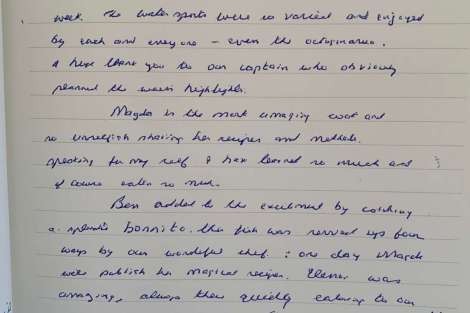 week. The watersports were so varied and enjoyed
by each and everyone - even the octogenarian.
A huge thank you to our captain who obviously
planned the weeks highlights.
Magda is the most amazing cook and
so unselfish sharing her recipes and methods.
Speaking for my self I have learned so much and
of course eaten so much.
Ben added to the excitement by catching
a splendid bonnito. The fish was served up four
ways by our wonderful chef: one day Magda
will publish her magical recipes. was
amazing, always there quietly catering to our